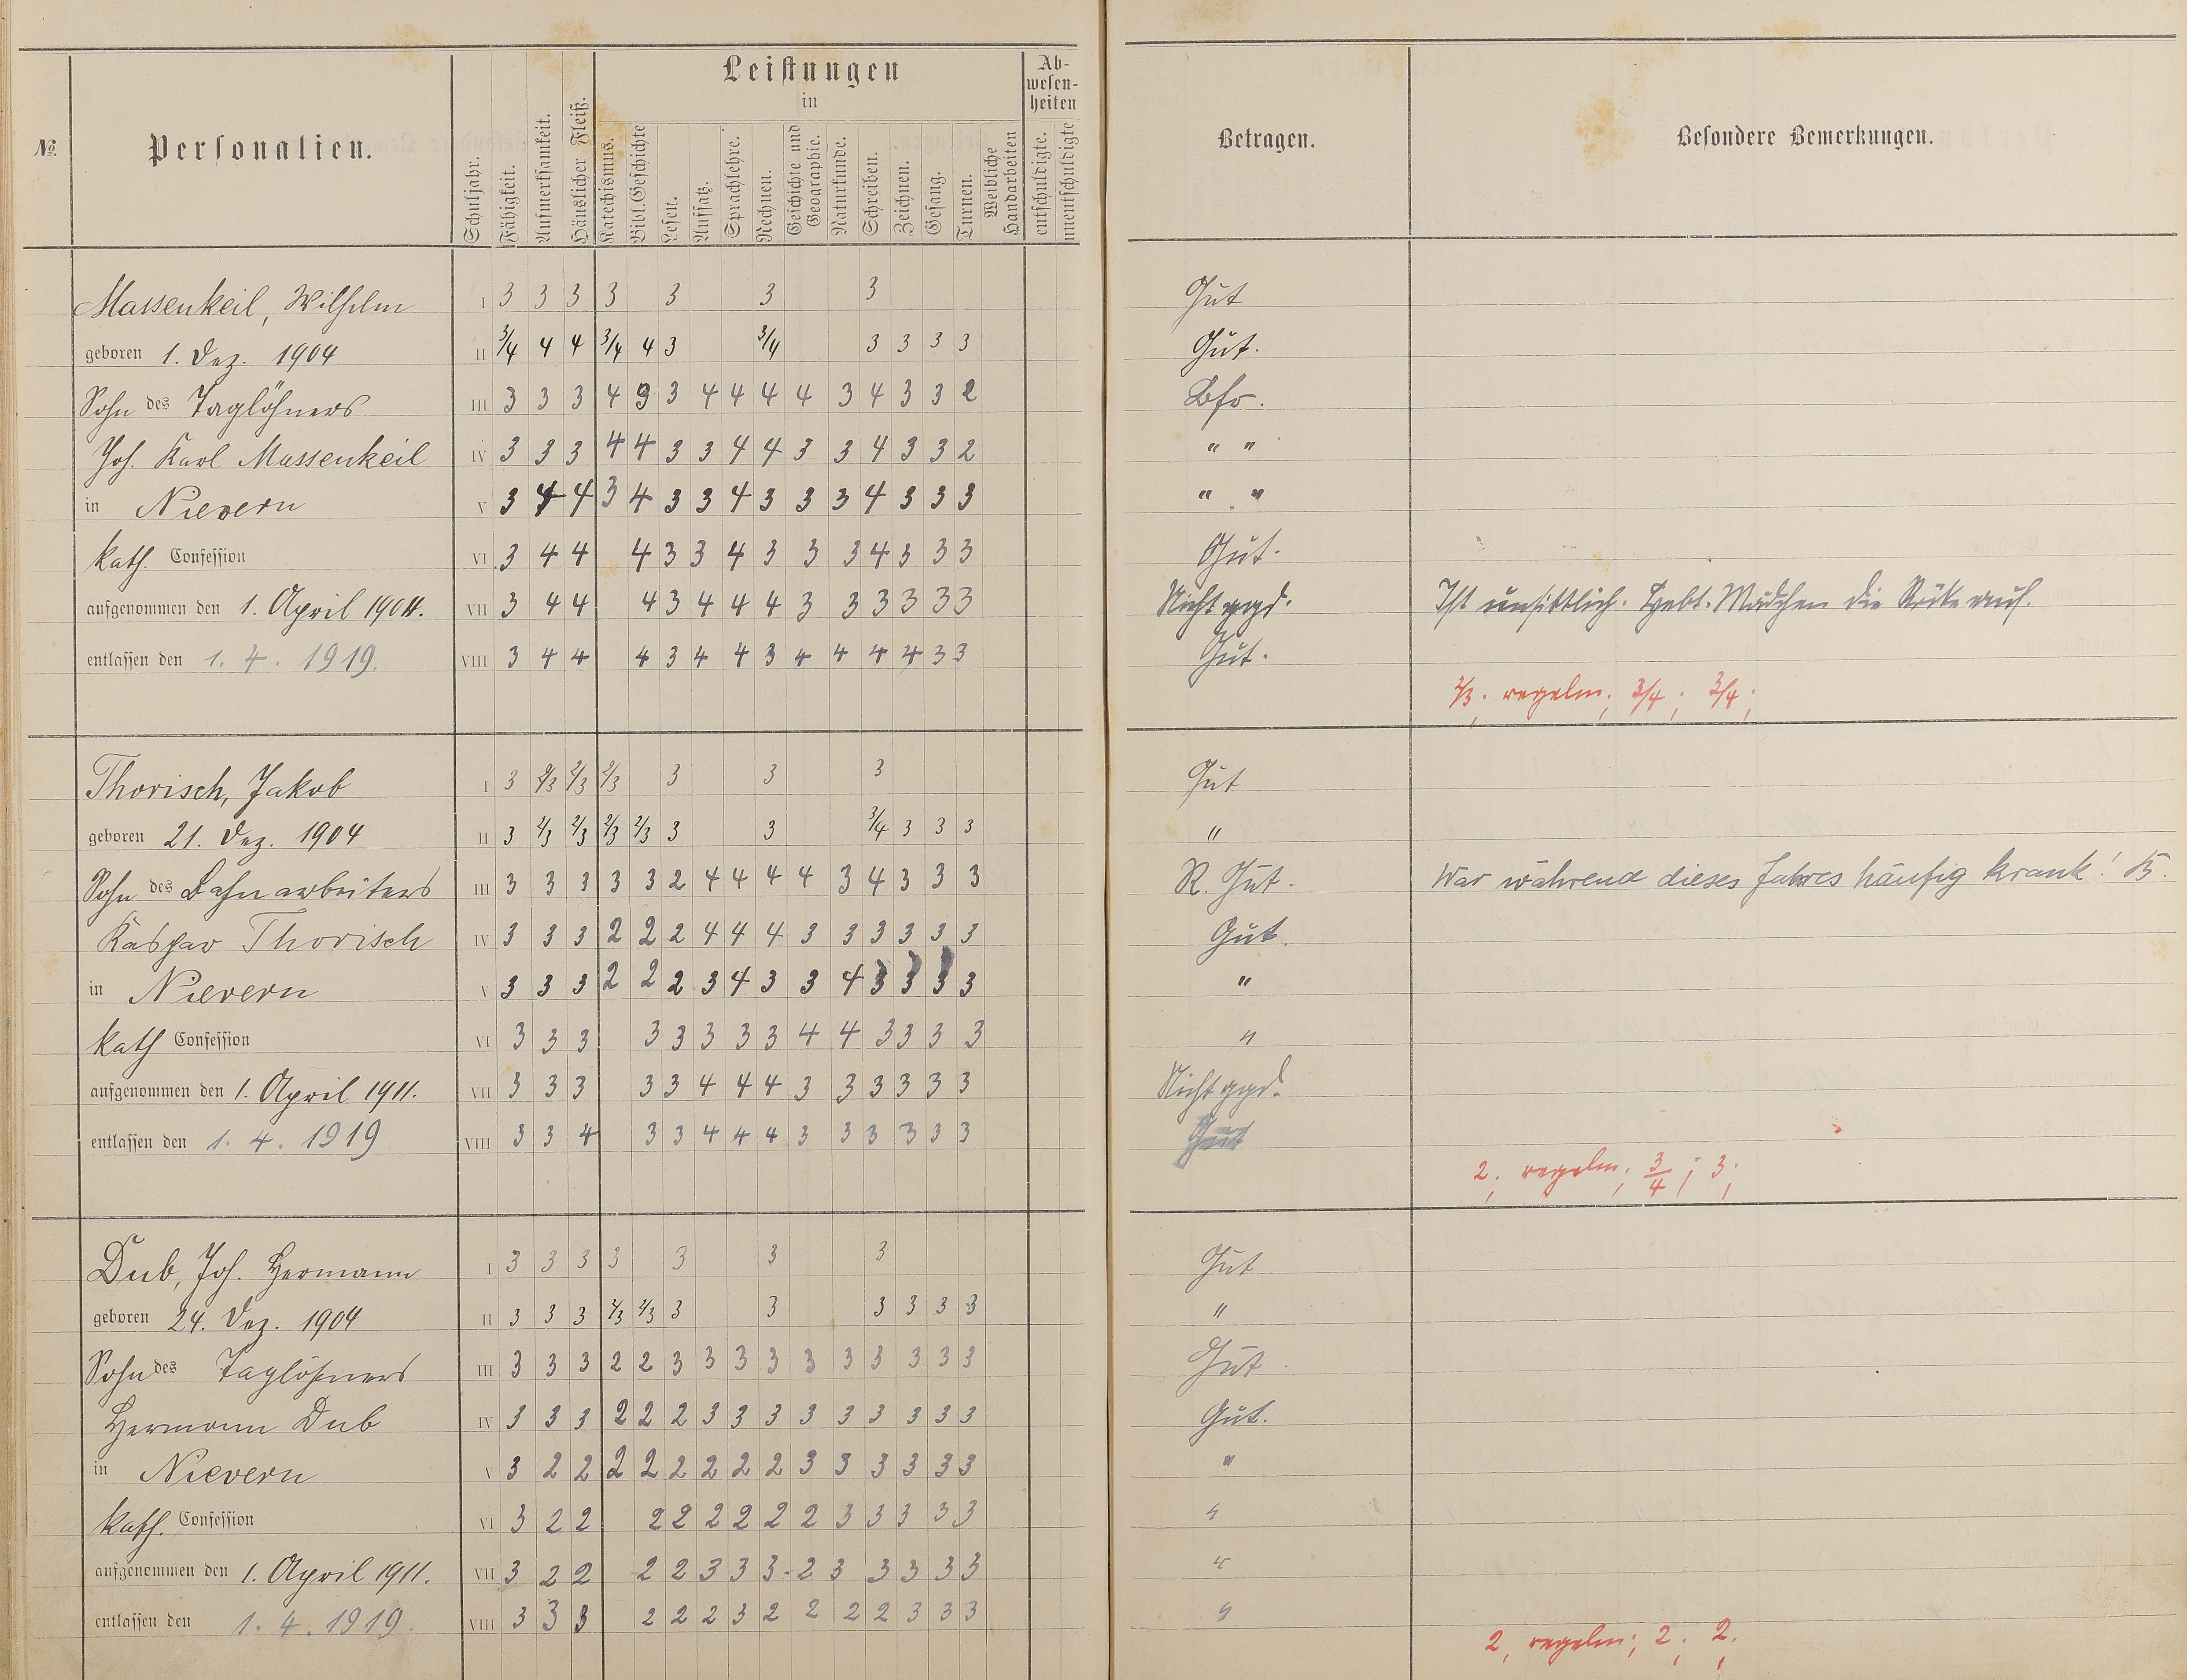 Leistungen
in
Ab-
wesen-
heiten
№.
Personalien.
Schuljahr.
Fähigkeit.
Aufmerksamkeit.
Häuslicher Fleiß.
Katechismus.
Bibl. Geschichte
Lesen.
Aufsatz.
Sprachlehre.
Rechnen.
Geschichte und
Geographie.
Naturkunde.
Schreiben.
Zeichnen.
Gesang.
Turnen.
Weibliche
Handarbeiten
entschuldigte.
unentschuldigte
Betragen.
Besondere Bemerkungen.
Massenkeil, Wilhelm I 3 3 3 3 3 3 3 Gut
geboren 1. Dez. 1904 II 3/4 4 4 3/4 4 3 3/4 3 3 3 3 Gut.
Sohn des Taglöhners III 3 3 3 4 3 3 4 4 4 4 3 4 3 3 2
Joh. Karl Massenkeil IV 3 3 3 4 4 3 3 4 4 3 3 4 3 3 2 " "
in Nievern V 3 4 4 3 4 3 3 4 3 3 3 4 3 3 3 " "
kath. Confession VI 3 4 4 4 3 3 4 3 3 3 4 3 3 3 Gut.
aufgenommen den 1. April 1904. VII 3 4 4 4 3 4 4 4 3 3 3 3 3 3 Nicht ggd. Ist unsittlich. Hebt. Mädchen die Röcke auf.
entlassen den 1. 4. 1919. VIII 3 4 4 4 3 4 4 3 4 4 4 4 3 3 Gut.
2/3; regelm; 3/4; 3/4;
Thorisch, Jakob I 3 2/3 2/3 2/3 3 3 3 Gut
geboren 21. Dez. 1904 II 3 2/3 2/3 2/3 2/3 3 3 3/4 3 3 3 "
Sohn des Bahnarbeiters III 3 3 3 3 3 2 4 4 4 4 3 4 3 3 3 R. Gut. War während dieses Jahres häufig krank!
Kaspar Thorisch IV 3 3 3 2 2 2 4 4 4 3 3 3 3 3 3 Gut.
in Nievern V 3 3 3 2 2 2 3 4 3 3 4 3 3 3 3 "
kath Confession VI 3 3 3 3 3 3 3 3 4 4 3 3 3 3 "
aufgenommen den 1. April 1911. VII 3 3 3 3 3 4 4 4 3 3 3 3 3 3 Nicht ggd.
entlassen den 1. 4. 1919 VIII 3 3 4 3 3 4 4 4 3 3 3 3 3 3 Gut
2; regelm; 3/4; 3;
Dub, Joh. Hermann I 3 3 3 3 3 3 3 Gut
geboren 24. Dez. 1904 II 3 3 3 2/3 2/3 3 3 3 3 3 3 "
Sohn des Taglöhners III 3 3 3 2 2 3 3 3 3 3 3 3 3 3 3 Gut.
Hermann Dub IV 3 3 3 2 2 2 3 3 3 3 3 3 3 3 3 Gut.
in Nievern V 3 2 2 2 2 2 2 2 2 3 3 3 3 3 3 "
kath. Confession VI 3 2 2 2 2 2 2 2 2 3 3 3 3 3 "
aufgenommen den 1. April 1911. VII 3 2 2 2 2 3 3 3 2 3 3 3 3 3 "
entlassen den 1. 4. 1919. VIII 3 3 3 2 2 2 3 2 2 2 2 3 3 3 "
2, regelm; 2; 2;